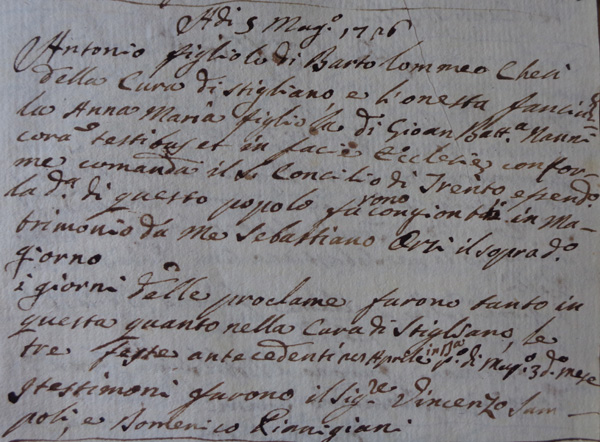 Adi 5 Mag.o 1726
Antonio figliolo di Bartolommeo Checi
della Cura di Stigliano, e l'onesta fanciul
la Anna Maria figliola di Gioan Batt.a Nanni
cora testibus et in facie Ecclesie confor-
me comanda il S. Concilio di Trento, esendo
la d.a di questo popolo furono congionti in Ma-
trimonio da me Sebastiano Orzi il soprad.o
giorno
i giorni delle proclame furono tanto in
questa quanto nella Cura di Stigliano, le
tre feste antecedenti Aprile p.o di Mag.o 3 d.o mese
I testimoni furono il Sig.re Vincenzo Sam
poli, e Domenico Pinnigiani